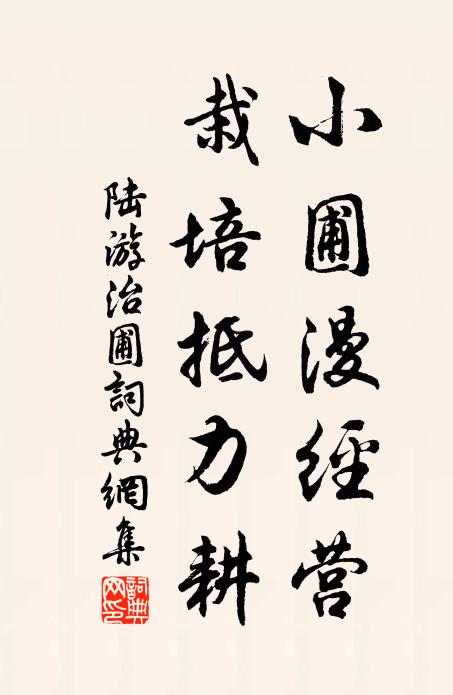 小圃漫經营
栽培抵力耕
陆游治圃詞典網集
詞典
网印